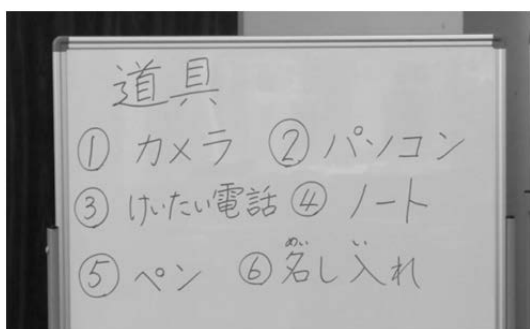 道具
① カメラ ② パソコン
③ けいたい電話 ④ ノート
⑤ ペン ⑥ 名し入れ
めい い